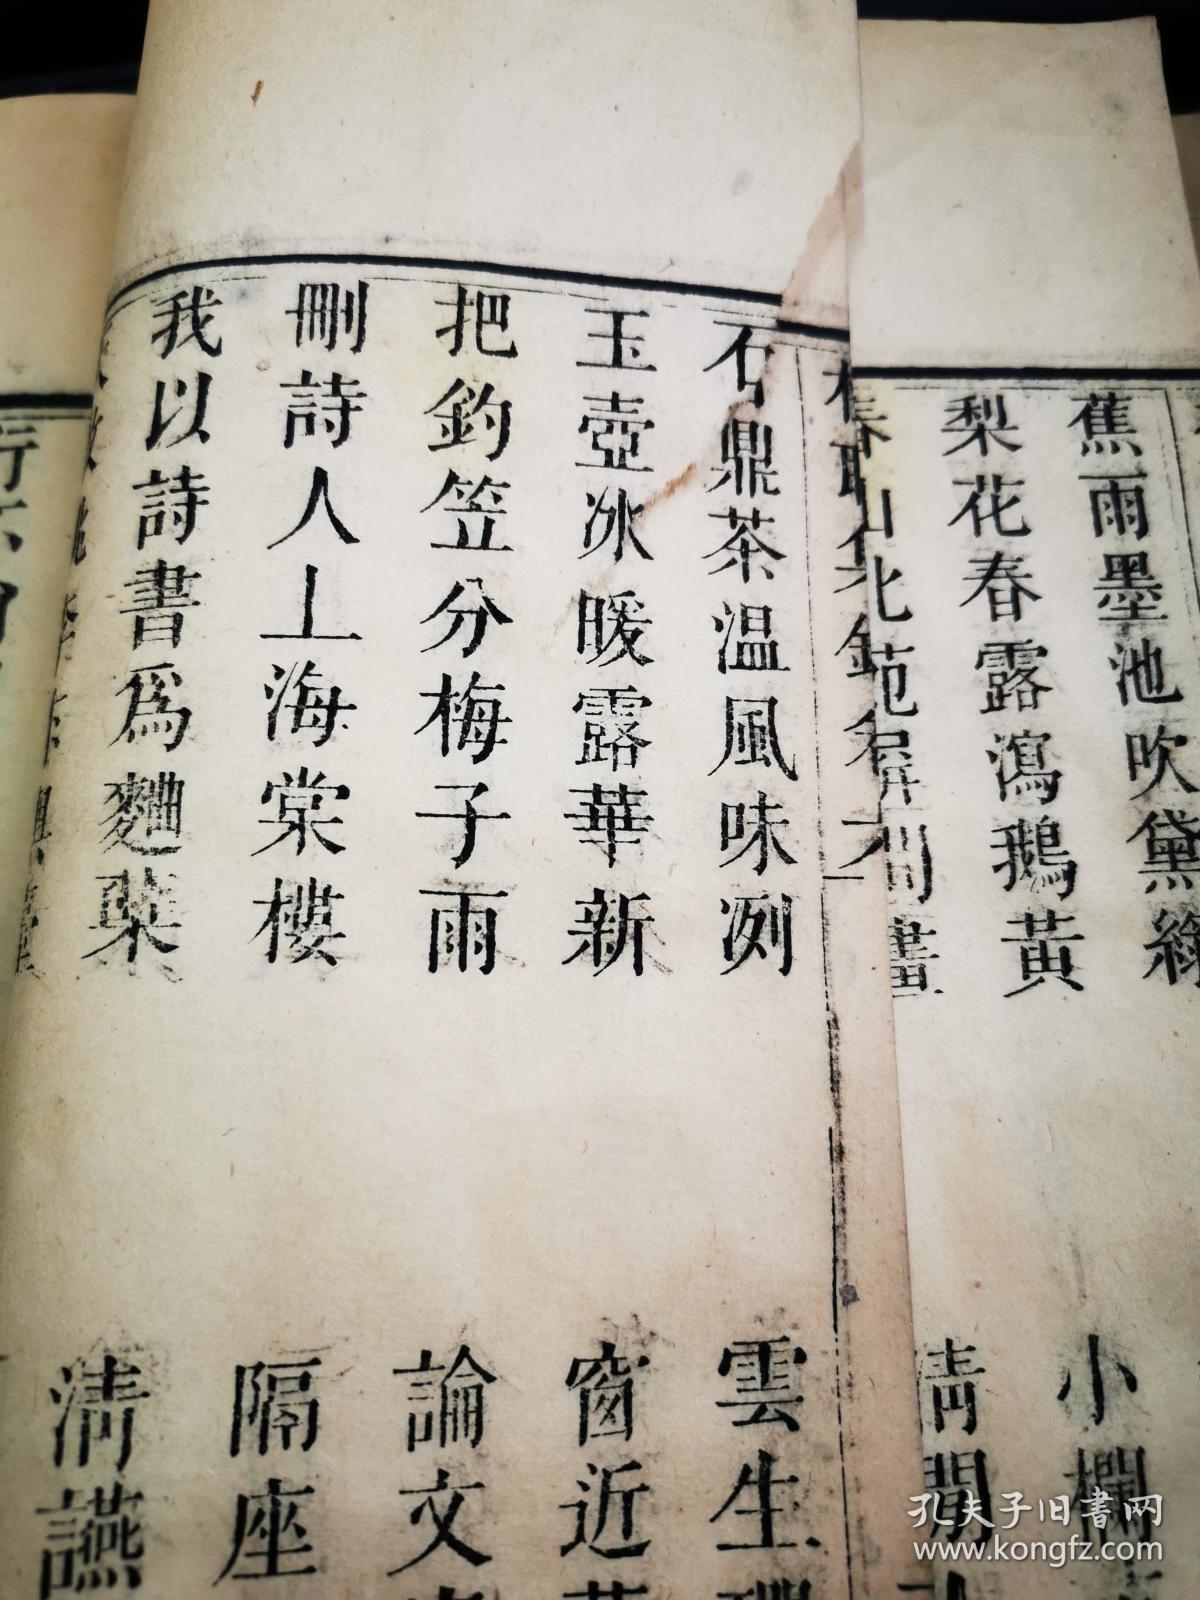 蕉雨墨池吹黛綠
小欄
梨花春露瀉鵝黃
清閒
春山北苑屏間畫
石鼎茶温風味冽
雲生
玉壺冰暖露華新
窗近
把釣笠分梅子雨
論文
刪詩人上海棠樓
隔座
我以詩書爲麯糵
清讌
孔夫子旧書网
www.kongfz.com